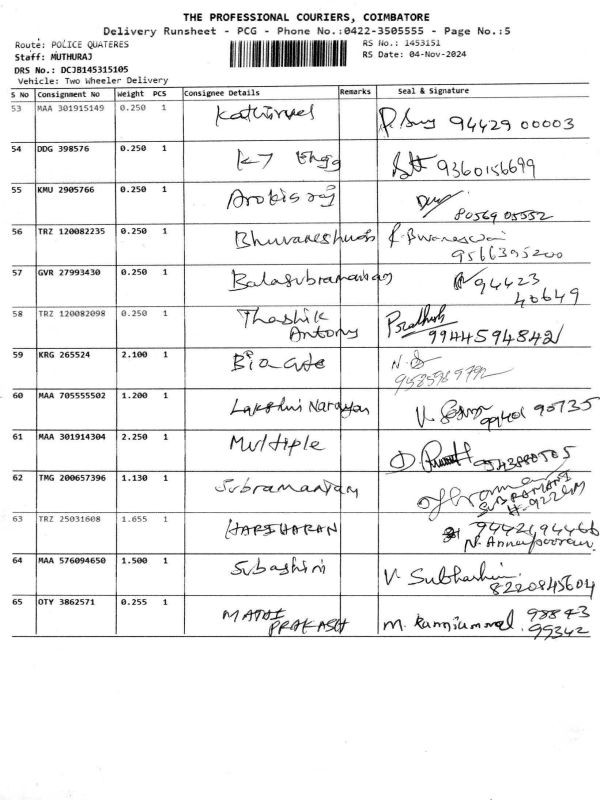 THE PROFESSIONAL COURIERS, COIMBATORE
Delivery Runsheet - PCG - Phone No.:0422-3505555 - Page No.:5
Route: POLICE QUATERES
RS No.: 1453151
Staff: MUTHURAJ
RS Date: 04-Nov-2024
DRS No.: DCJB145315105
Vehicle: Two Wheeler Delivery
S No Consignment No Weight PCS Consignee Details Remarks Seal & Signature
53 MAA 301915149 0.250 1 Kathirvel 94429 00003
54 DDG 398576 0.250 1 K7 Engg 9360156699
55 KMU 2905766 0.250 1 Arokis raj
80569 05552
56 TRZ 120082235 0.250 1 Bhuvaneshwari
9566395200
57 GVR 27993430 0.250 1 Balasubramaniam 94423
40649
58 TRZ 120082098 0.250 1 Thashik
Antony
9944594842
59 KRG 265524 2.100 1
60 MAA 705555502 1.200 1 Lakshmi Narayan 99401 90735
61 MAA 301914304 2.250 1 Multiple
62 TMG 200657396 1.130 1 Subramaniam
SUBRAMANI
63 TRZ 25031608 1.655 1 HARIHARAN
N. Annapoorani
64 MAA 576094650 1.500 1 Subashini V. Subhashini
8220845604
65 OTY 3862571 0.255 1 MATHI
PRAKASH M. 98843
99342